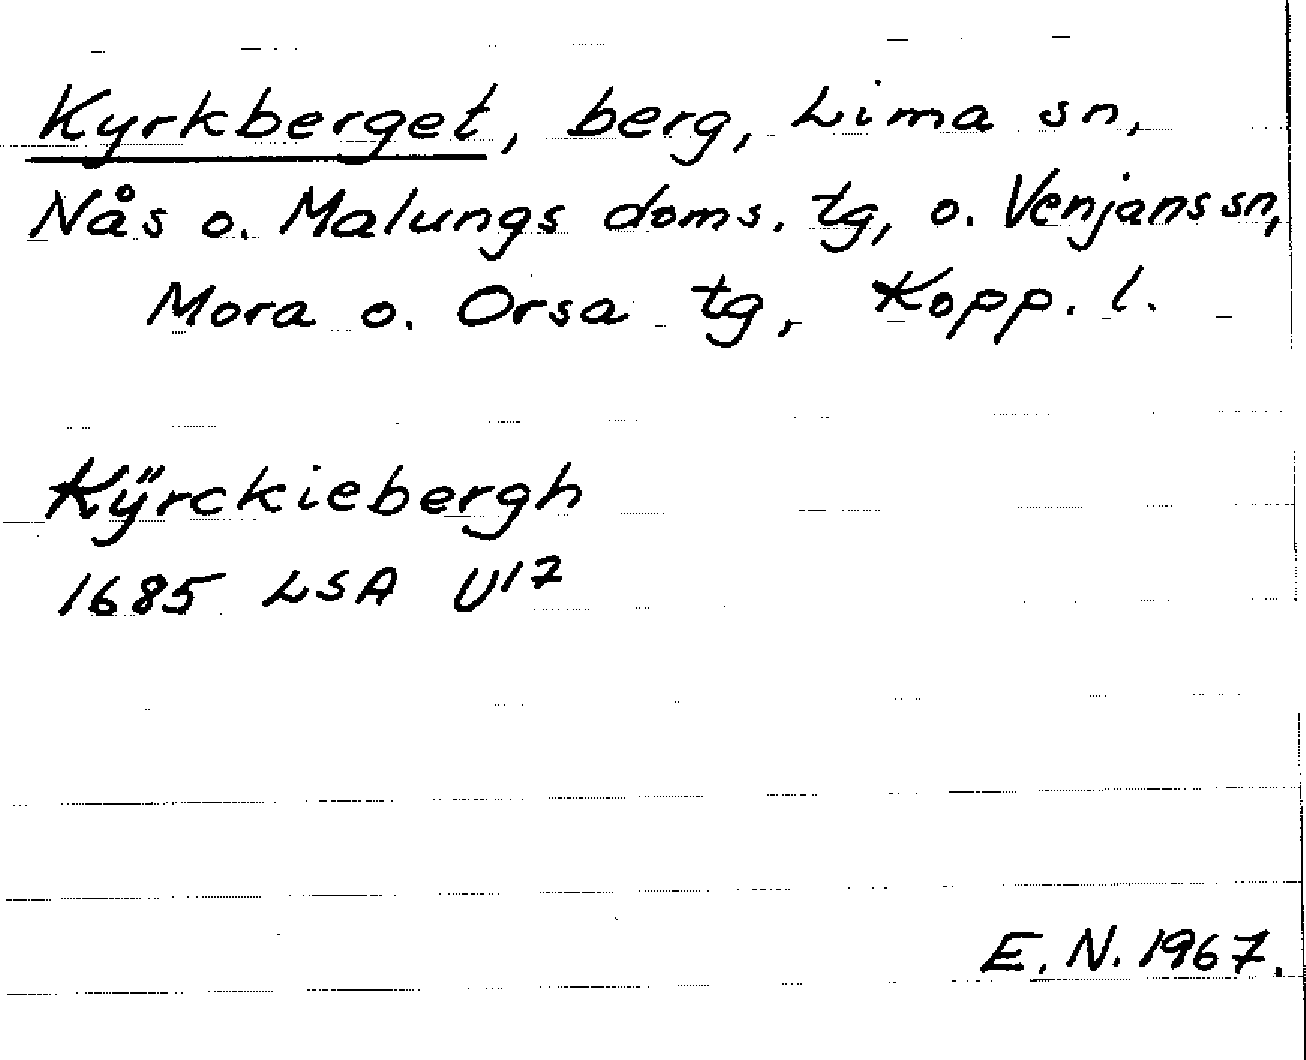 Kyrkberget, berg, Lima sn,
Nås o. Malungs doms. tg, o. Venjans sn,
Mora o. Orsa tg, Kopp. l.
Kÿrckiebergh
1685 LSA U17
E. N. 1967.